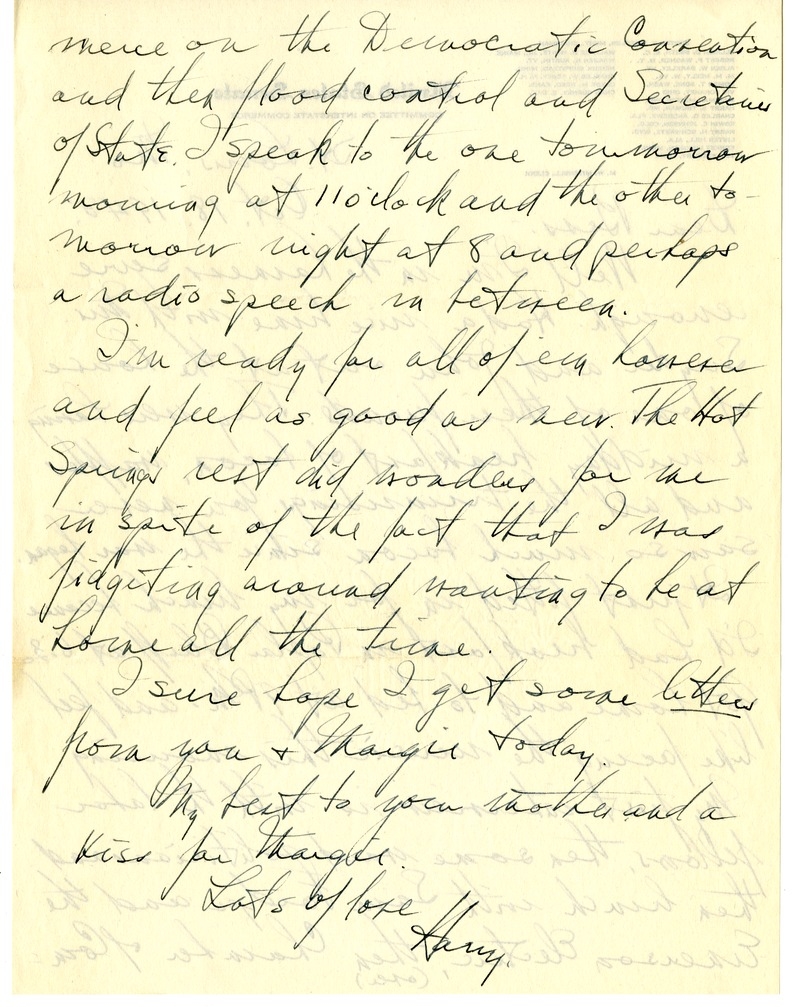 merce on the Democratic Convention
and then flood control and Secretaries
of State. I speak to the one tommorrow
morning at 11 o'clock and the other to-
morrow night at 8 and perhaps
a radio speech in between.
I'm ready for all of em however
and feel as good as new. The Hot
Springs rest did wonders for me
in spite of the fact that I was
fidgiting around wanting to be at
home all the time.
I sure hope I get some letters
from you & Margie today.
My best to your mother and a
kiss for Margie.
Lots of love
Harry.